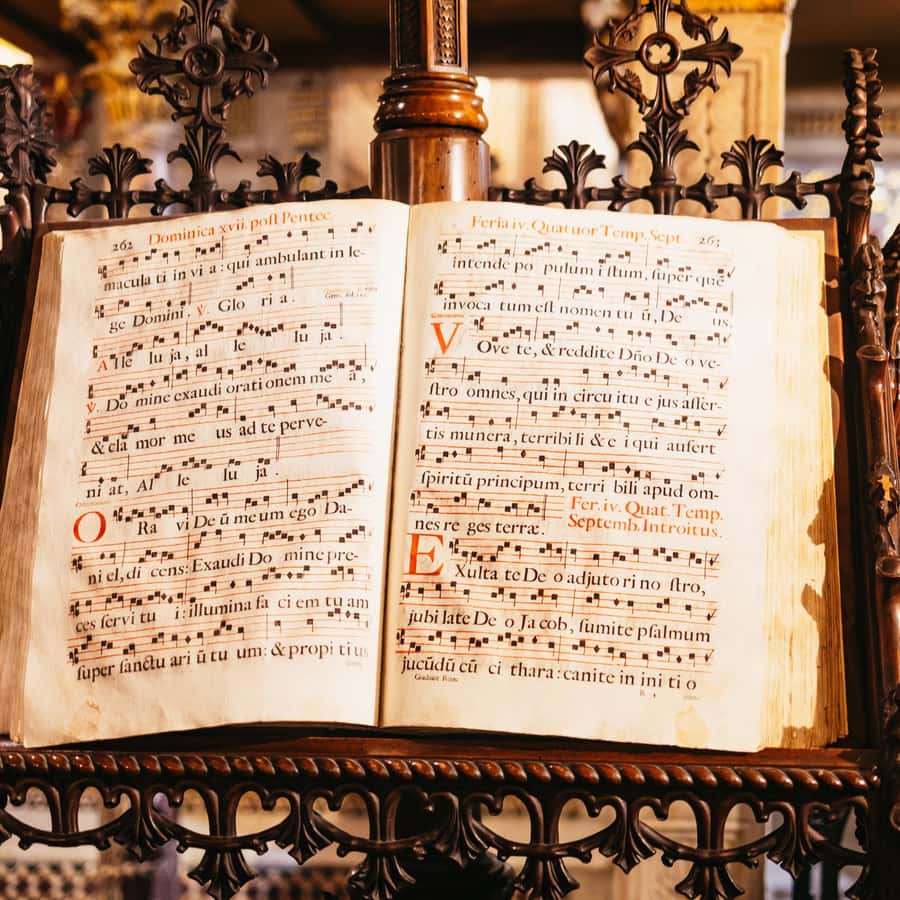 262
Dominica xvii. post Pentec.
macula ti in vi a : qui ambulant in le-
ge Domini. ℣. Glo ri a.
Alle lu ja, al le lu ja.
℣. Do mine exaudi orati onem me ā,
& cla mor me us ad te perve-
ni at, Al le lu ja.
O Ra vi De ū me um ego Da-
ni el, di cens: Exaudi Do mine pre-
ces servi tu i: illumina fa ci em tu am
super sanctu ari ū tu um: & propi ti us
Feria iv. Quatuor Temp. Sept.
263
intende po pulum i stum, super quē
invoca tum est nomen tu ū, De us.
V Ove te, & reddite Dño De o ve-
stro omnes, qui in circu itu e jus affer-
tis munera, terribi li & e i qui aufert
spiritū principum, terri bili apud om-
nes re ges terræ.
Fer. iv. Quat. Temp.
Septemb. Introitus.
E Xulta te De o adjuto ri no stro,
jubi late De o Ja cob, sumite psalmum
jucūdū cū ci thara: canite in ini ti o
Graduale Rom.